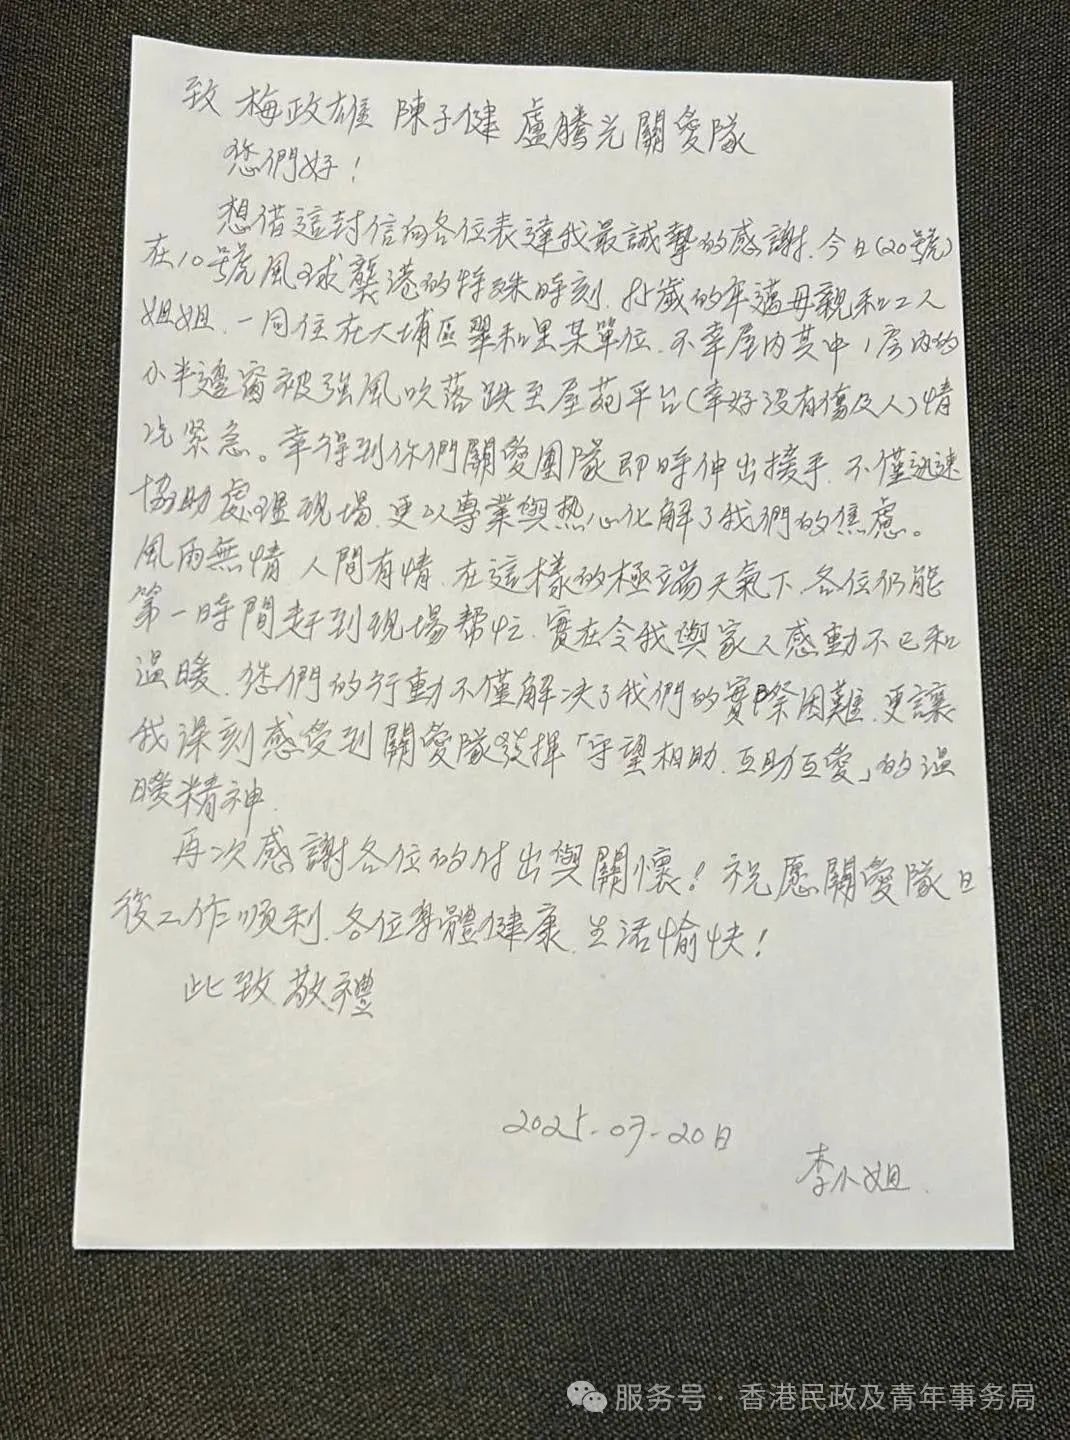 致 梅政雄 陳子健 盧騰光關愛隊
您們好！
想借這封信向各位表達我最誠摯的感謝，今日(20號)
在10號風球襲港的特殊時刻，歲的年邁母親和工人
姐姐，一同住在大埔區翠和里某單位，不幸屋內其中1房內的
小半邊窗被強風吹落跌至屋苑平台(幸好沒有傷及人)情
況緊急。幸得到你們關愛團隊即時伸出援手，不僅迅速
協助處理現場，更以專業與热心化解了我們的焦慮。
風雨無情，人間有情，在這樣的極端天氣下，各位仍能
第一時間趕到現場帮忙，實在令我與家人感動不已和
溫暖，您們的行動不僅解决了我們的實際困難，更讓
我深刻感受到關愛隊發揮「守望相助，互助互愛」的溫
暖精神，
再次感謝各位的付出與關懷！祝愿關愛隊日
後工作順利，各位身體健康，生活愉快！
此致 敬禮
2025-07-20日
李小姐，
服务号 · 香港民政及青年事务局